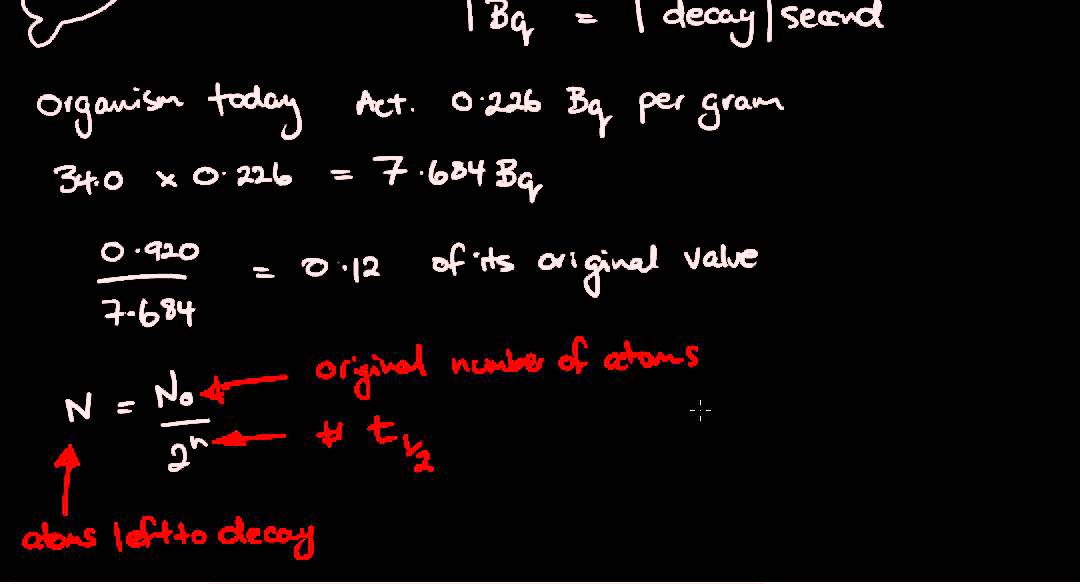 1 Bq = 1 decay/second
Organism today Act. 0.226 Bq per gram
34.0 x 0.226 = 7.684 Bq
0.920
7.684
= 0.12 of its original value
N = N₀
2ⁿ
original number of atoms
# t 1/2
atoms left to decay